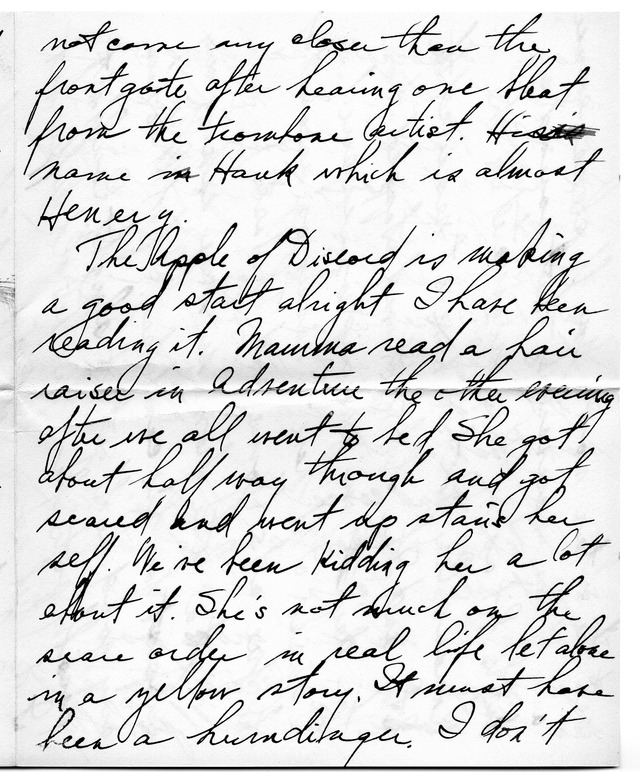 not come any closer than the
front gate after hearing one bleat
from the trombone artist. His
name is Hank which is almost
Henery.
The Apple of Discord is making
a good start alright I have been
reading it. Mamma read a hair
raiser in Adventure the other evening
after we all went to bed She got
about half way through and got
scared and went up stairs her
self. We've been kidding her a lot
about it. She's not much on the
scare order in real life let alone
in a yellow story. It must have
been a humdinger. I don't